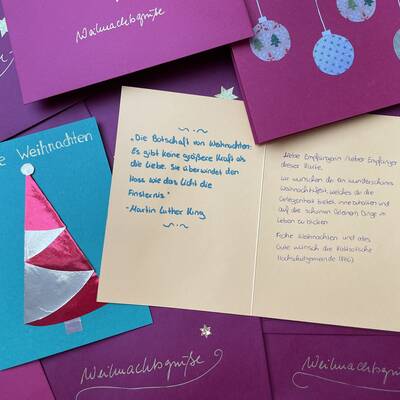 Weihnachtsgrüße
e Weihnachten
"Die Botschaft von Weihnachten:
Es gibt keine größere Kraft als
die Liebe. Sie überwindet den
Hass wie das Licht die
Finsternis"
- Martin Luther King
Liebe Empfängerin, lieber Empfänger
dieser Karte,
wir wünschen dir ein wunderschönes
Weihnachtsfest, welches dir die
Gelegenheit bietet innezuhalten und
auf die schönen (kleinen) Dinge im
Leben zu blicken.
Frohe Weihnachten und alles
Gute wünscht die Katholische
Hochschulgemeinde (KHG)
Weihnachtsgrüße
Weihnachtsgrüße